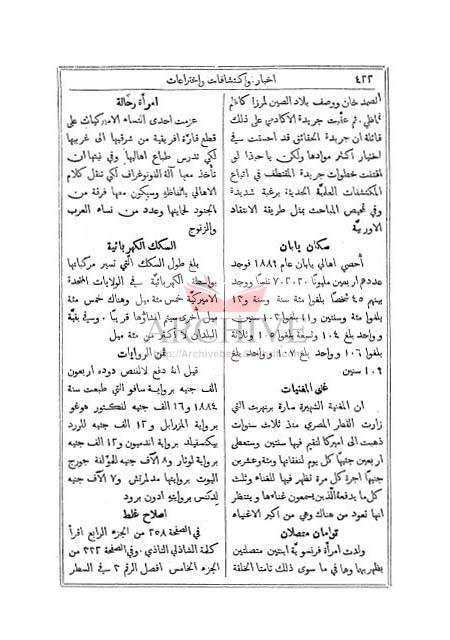 ٤٢٢ اخبار واكتشافات واختراعات
الصمد خان ووصف بلاد الصين لمرزا كاظم
ثم عقّبت جريدة الاكادمي على ذلك
قائلة ان جريدة الحقائق قد احسنت في
اختيار اكثر موادها ولكن يا حبذا لو
اقتفت خطوات جريدة المقتطف في اتباع
المكتشفات العلميّة الحديثة برغبة شديدة
وفي تمحيص المباحث بمثل طريقة الانتقاد
الاوربيّة
سكان يابان
أحصي اهالي يابان عام ١٨٨٩ فوجد
عددهم اربعين مليونًا و نفسًا ووجد
بينهم ٤٥ شخصًا بلغوا مئة سنة وسنة و١٢
بلغوا مئة وسنتين و١١ بلغوا ١٠٣ سنين
وواحد بلغ ١٠٤ وتسعة بلغوا ١٠٥ وثلاثة
بلغوا ١٠٦ وواحد بلغ ١٠٧ وواحد بلغ
١٠٩ سنين
غنى المغنيات
ان المغنية الشهيرة سارة برنهرت التي
زارت القطر المصري منذ ثلاث سنوات
ذهبت الى اميركا لتقيم فيها سنتين وستعطى
اربعين جنيهًا كل يوم لنفقاتها ومئة وعشرين
جنيهًا اجرة كل مرة تظهر فيها للغناء وثلث
كل ما يدفعهُ الذين يسمعون غناءها وينتظر
انها تعود من هناك وهي من اكبر الاغنياء
توأمان متصلان
ولدت امرأة فرنسويّة ابنتين متصلتين
بظهريهما وهما في ما سوى ذلك تامتا الخلقة
امرأة رحّالة
عزمت احدى النساء الاميركيات على
قطع قارّة افريقية من شرقيها الى غربيها
لكي تدرس طباع اهاليها وفي نيتها ان
تأخذ معها آلة الفونوغراف لكي تنقل كلام
الاهالي بألفاظهِ وسيكون معها فرقة من
الجنود لحمايتها وعدد من نساء العرب
والزنوج
السكك الكهربائية
بلغ طول السكك التي تسير مركباتها
بواسطة الكهربائيّة في الولايات المتحدة
الاميركيّة خمس مئة ميل وهناك خمس مئة
ميل أخرى سيتم انشاؤها قريبًا. وفي بقيّة
البلدان لا اكثر من مئة ميل
ثمن الروايات
قيل انهُ دفع لالفنس دوده اربعون
الف جنيه برواية سافو التي طبعت سنة
١٨٨٤ و١٦ الف جنيه لفكتور هوغو
برواية المزرابل و١٢ الف جنيه للورد
بيكنسفيلد برواية اندميون و١٢ الف جنيه
برواية لوثار و٨ آلاف جنيه للمؤلفة جورج
اليوت بروايتها مدلمرتش و٧ آلاف جنيه
لدكنس بروايتهِ ادون درود
اصلاح غلط
في الصفحة ٢٥٨ من الجزء الرابع اقرأ
كلمة الشاذلي التاذي. وفي الصفحة ٢٢٢ من
الجزء الخامس افصل الرقم ٢ في السطر
ARCHIVE